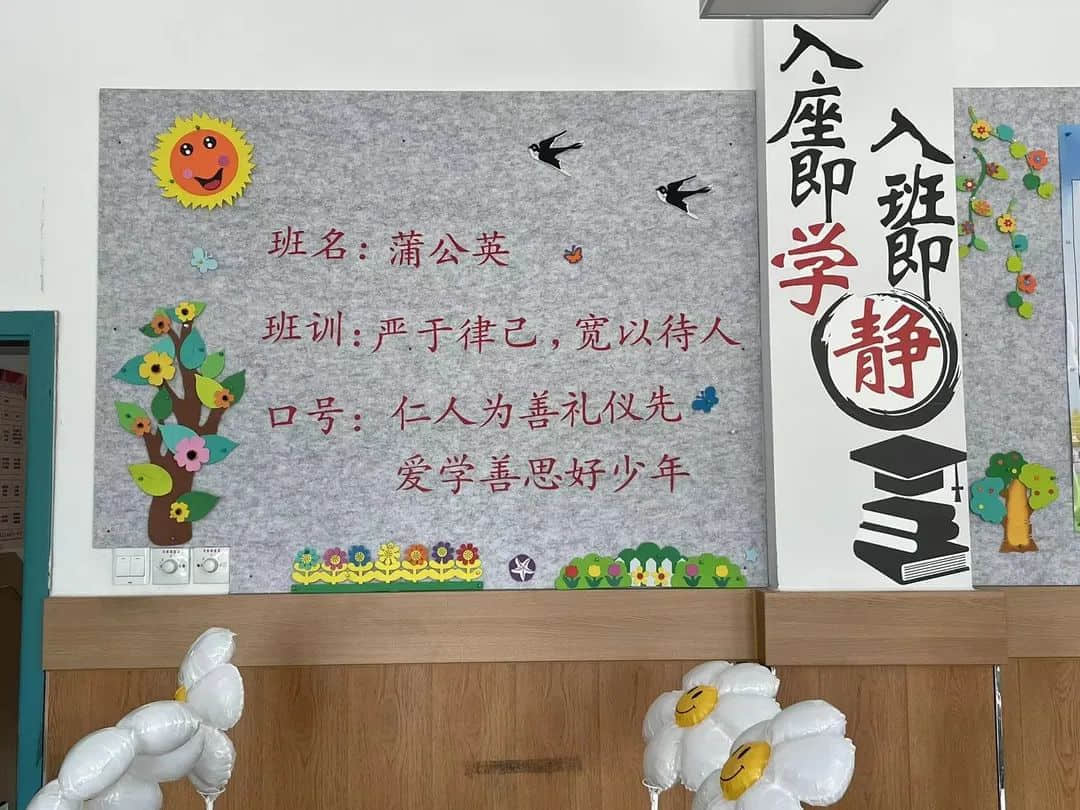 班名：蒲公英
班训：严于律己，宽以待人
口号：仁人为善礼仪先
爱学善思好少年
入班即静
入座即学